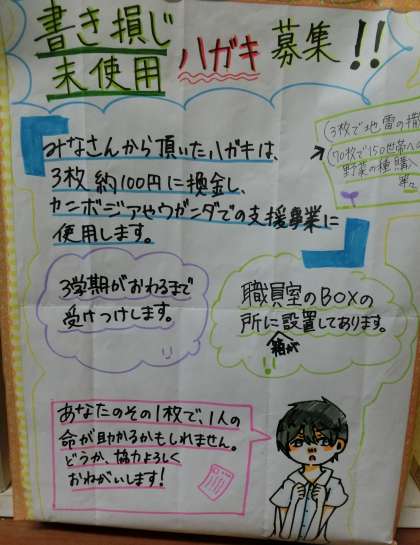 書き損じ
未使用 ハガキ 募集!!
みなさんから頂いたハガキは、
3枚 約100円に換金し、
カンボジアやウガンダでの支援事業に
使用します。
(3枚で地雷の撤
(70枚で150世帯への
野菜の種購入
等々
3学期がおわるまで
受けつけします。
職員室のBOXの
所に設置してあります。
箱が
あなたのその1枚で、1人の
命が助かるかもしれません。
どうか、協力よろしく
おねがいします!